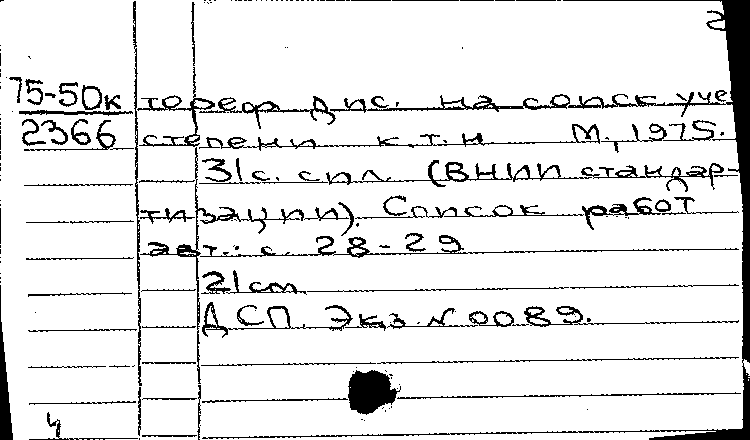 2
75-50к тореф дис. на соиск уче
2366 степени к.т.н М., 1975.
31с. с ил. (ВНИИ стандар-
тизации). Список работ
авт.: с. 28-29
21 cm
ДСП. Экз. № 0089.
4